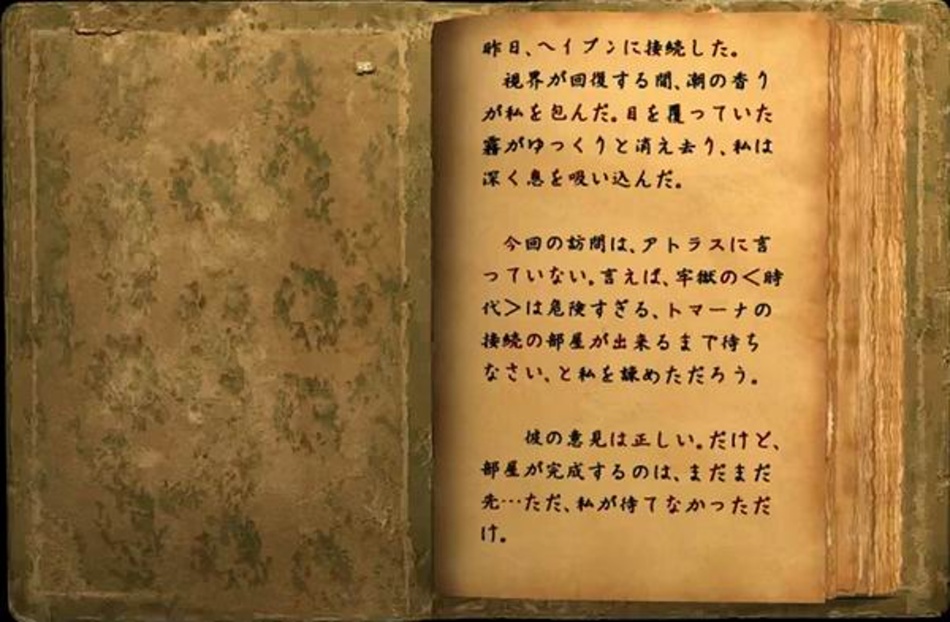 昨日、ヘイブンに接続した。
視界が回復する間、潮の香り
が私を包んだ。目を覆っていた
霧がゆっくりと消え去り、私は
深く息を吸い込んだ。
今回の訪問は、アトラスに言
っていない。言えば、牢獄の<時
代>は危険すぎる、トマーナの
接続の部屋が出来るまで待ち
なさい、と私を諌めただろう。
彼の意見は正しい。だけど、
部屋が完成するのは、まだまだ
先…ただ、私が待てなかっただ
け。